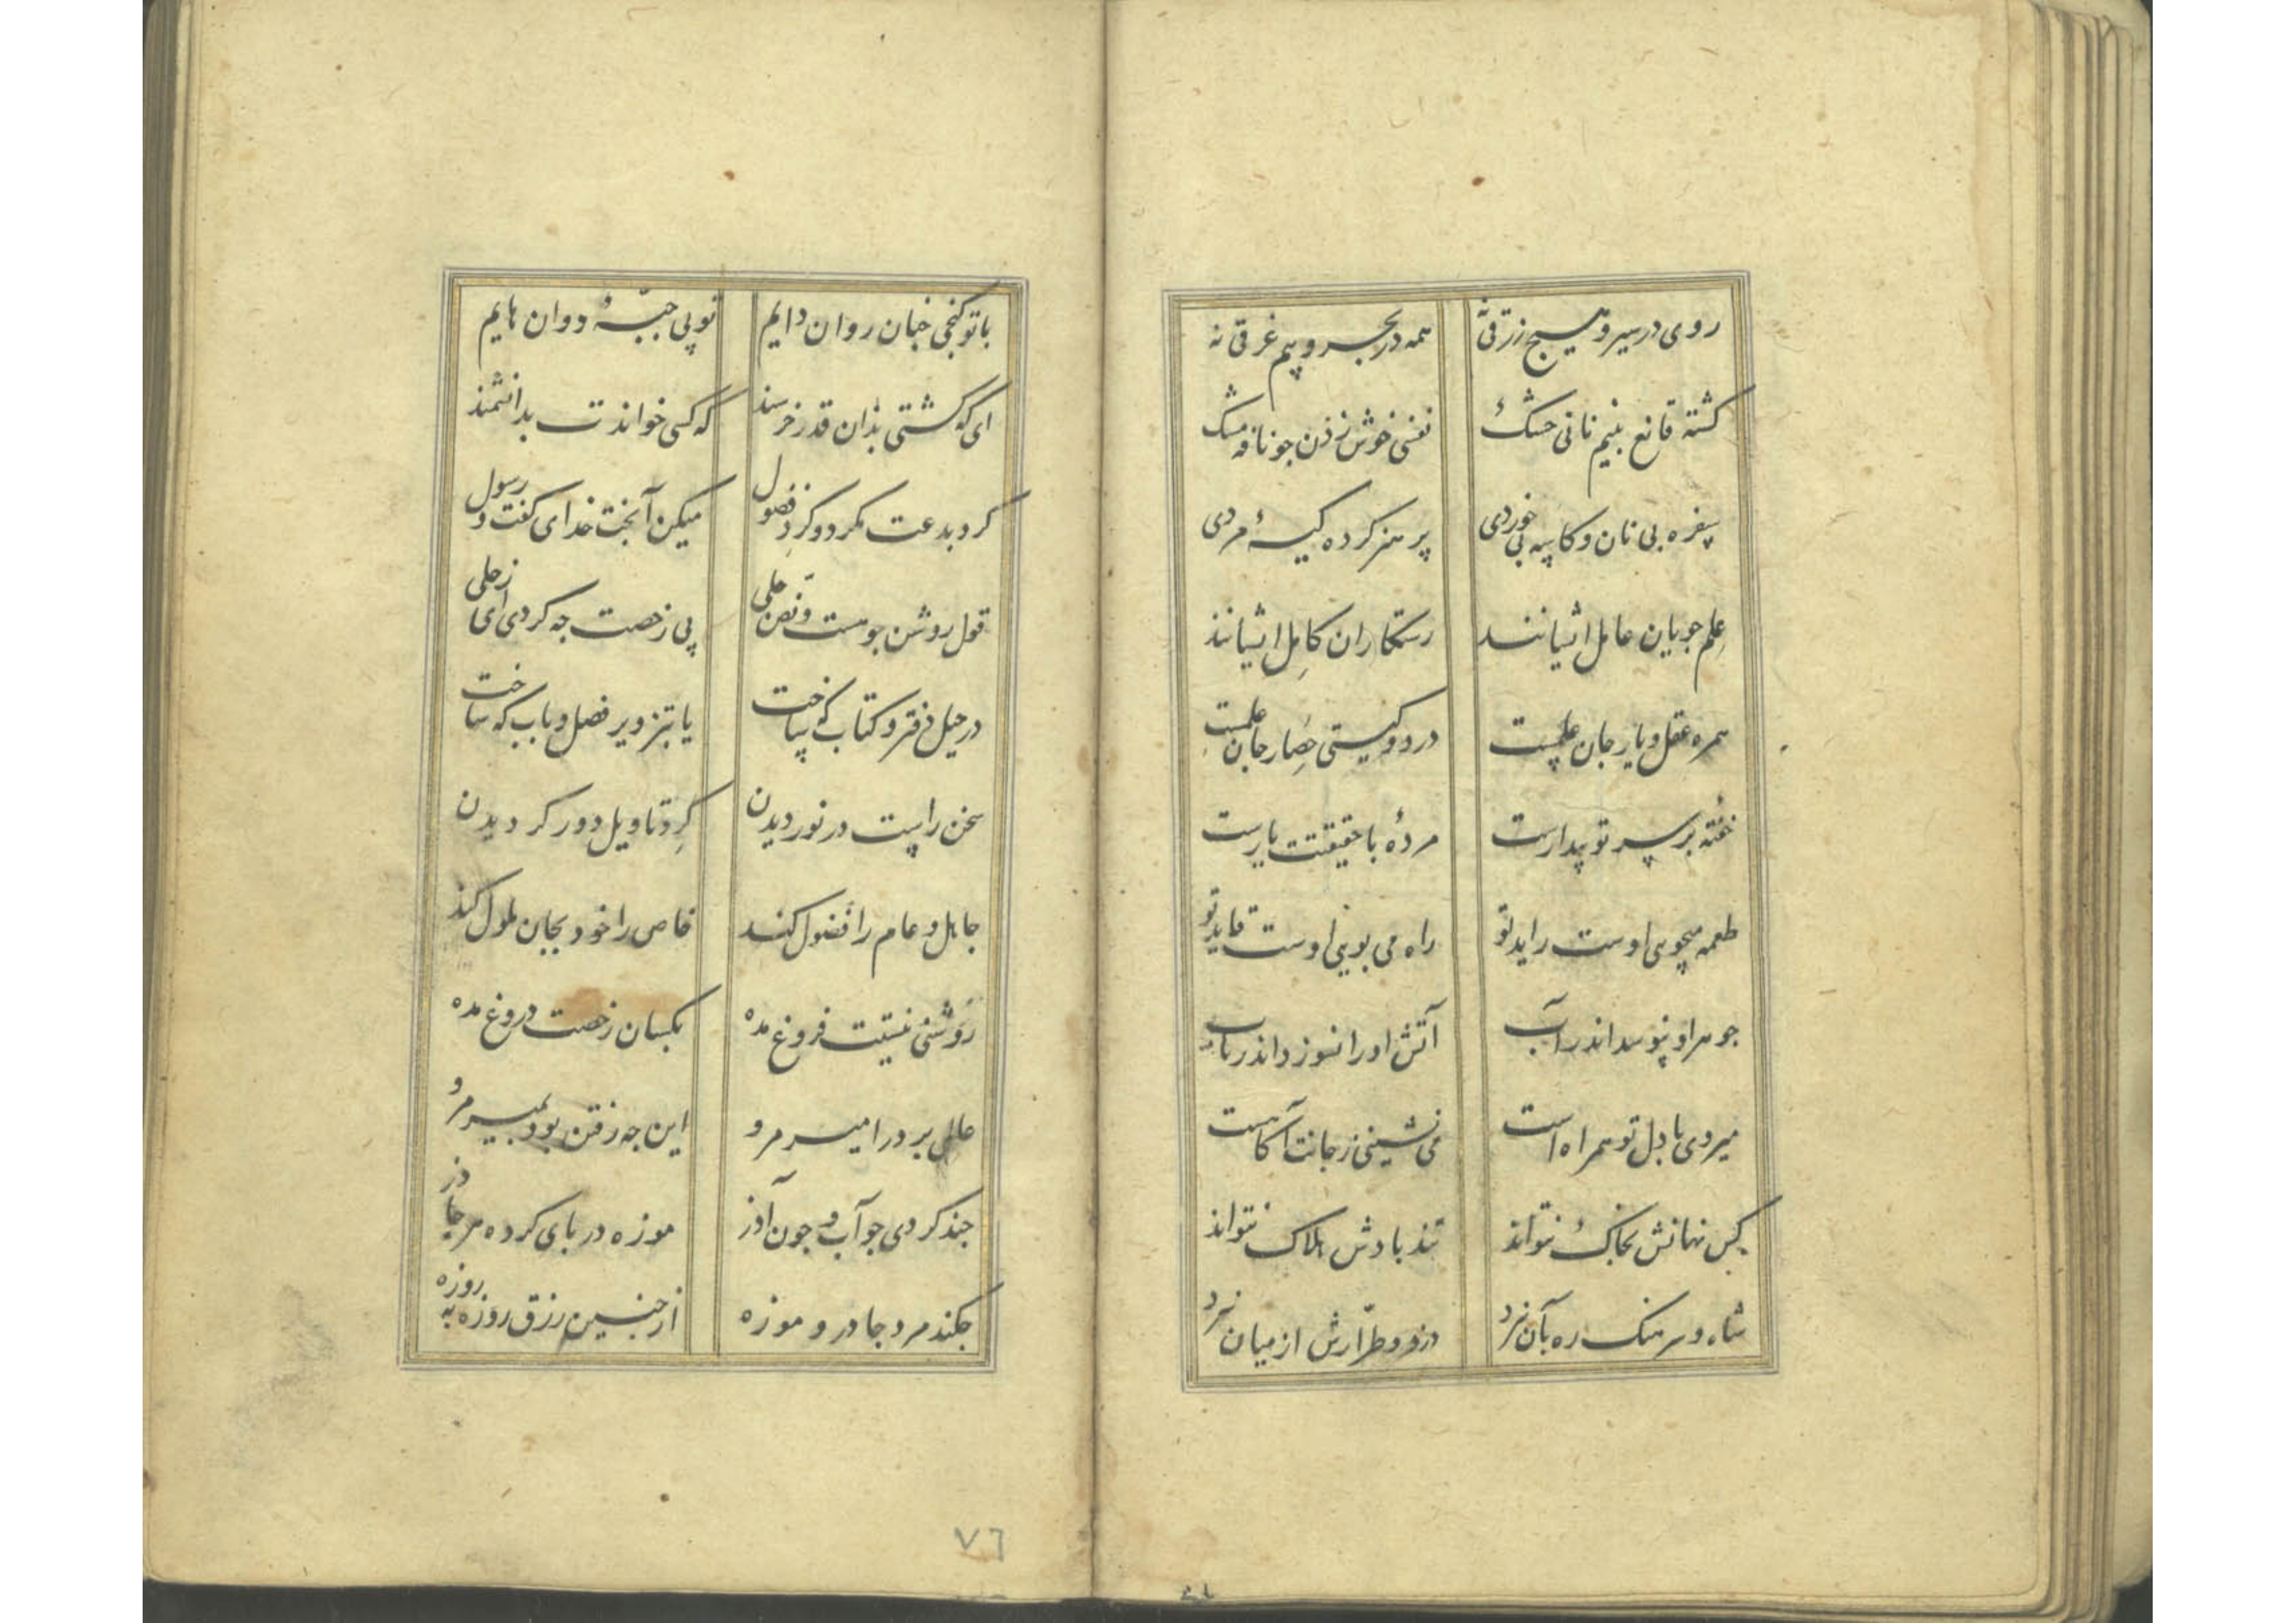 روی در سیر و هیچ زرقی نه همه در بحر و هیچ غرقی نه
کشته قانع بنیم نانی خشک نفسی خوش زدن جو نافه مشک
سفره بی نان و کاسه بی خوردی پر هنر کرده کیسهٔ مردی
علم جویان عامل ایشانند رستکاران کامل ایشانند
همره عقل و یار جان علمست در دو کیستی حصار جان علمست
خفته بر سر تو بیدارست مردهٔ با حقیقتت یارست
طعمه میجویی اوست راید تو راه می بویی اوست قاید تو
جوهر او نپوسد اندر آب آتش او را نسوزد اندر تاب
میروی با دل تو همراه است می نشینی ز جانت آکاهست
کس نهانش بخاک نتواند تند بادش هلاک نتواند
شاه و سرهنک ره بآن نبرد دزد و طرّارش از میان نبرد
با تو کنجی جنان روان دایم تو پی جبّهٔ دوان هایم
ای که کشتی بذان قدر خرسند که کسی خواندت بدانشمند
کرد بدعت مکرد و کرد فضول میکن آنجت خدای کفت و رسول
قول روشن جو هست و نصّ جلی پی رخصت جه کردی ای زحلی
در حیل دفتر و کتاب که ساخت یا بتزویر فصل و باب که ساخت
سخن راست در نوردیدن کرد تاویل دور کردیدن
جاهل و عام را فضول کند خاص را خود بجان ملول کند
روشنی نیستت فروغ مده بکسان رخصت دروغ مده
عالمی بر در امیر مرو این جه رفتن بود بمیر مرو
جند کردی جو آب و جون آذر موزه در بای کرده مر جادر
جکند مرد جادر و موزه از جنین رزق روزه به روزه
٧٦